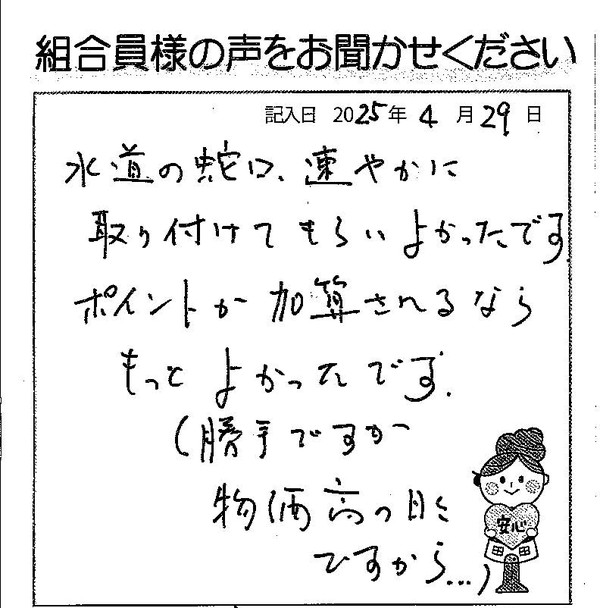 組合員様の声をお聞かせください
記入日 2025年 4 月 29 日
水道の蛇口、速やかに
取り付けてもらいよかったです
ポイントが加算されるなら
もっとよかったです.
(勝手ですが
物価高の時
ですから...)
安心